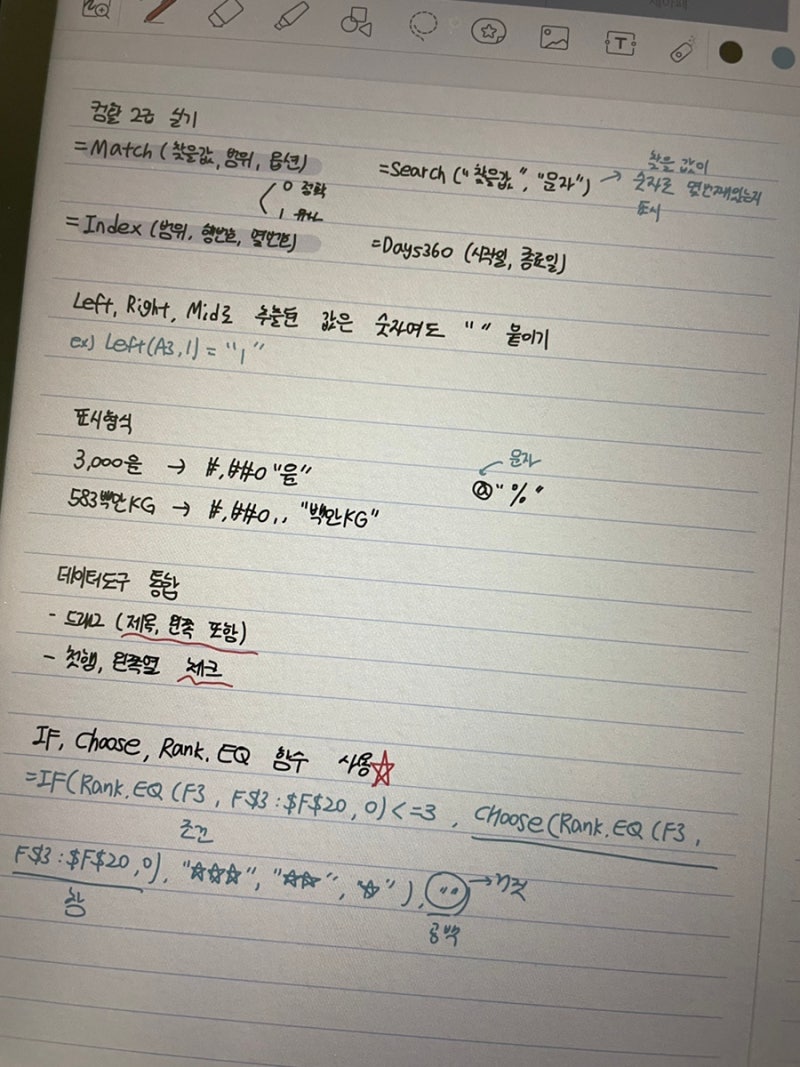 컴활 2급 실기
=Match (찾을값, 범위, 옵션)
0 정확
1 유사
=Search ("찾을값", "문자") → 찾을 값이
숫자로 몇번째있는지
표시
=Index (범위, 행번호, 열번호)
=Days360 (시작일, 종료일)
Left, Right, Mid로 추출된 값은 숫자여도 " " 붙이기
ex) Left(A3,1) = "1"
표시형식
3,000원 → #,##0 "원"
583백만KG → #,##0,, "백만KG"
문자
@"%"
데이터도구 통합
- 드래그 (제목, 왼쪽 포함)
- 첫행, 왼쪽열 체크
IF, Choose, Rank.EQ 함수 사용☆
=IF(Rank.EQ (F3, F$3:$F$20, 0)<=3, Choose(Rank.EQ (F3,
조건
F$3:$F$20,0), "☆☆☆", "☆☆", "☆"), "" →거짓
참
공백